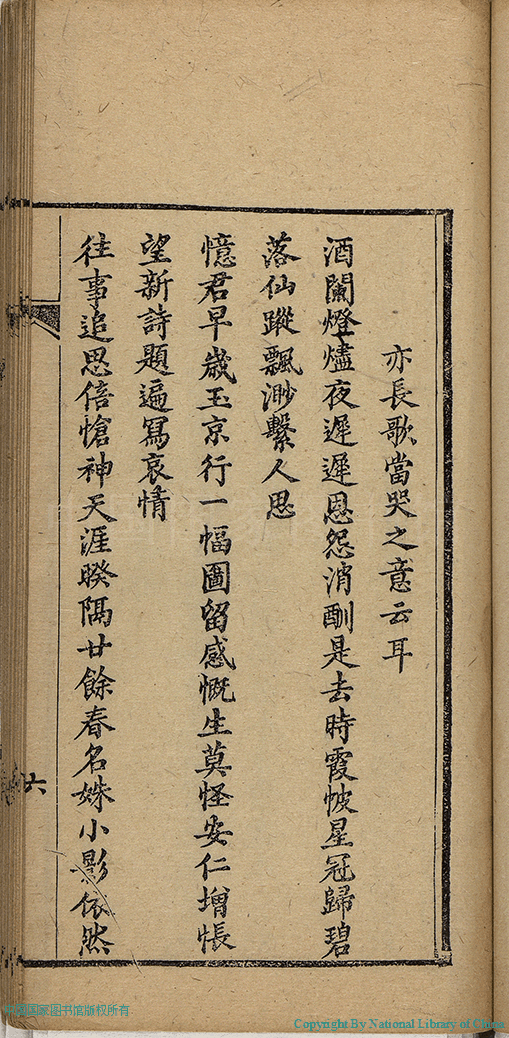 亦長歌當哭之意云耳
酒闌燈燼夜遲遲恩怨消酬是去時霞帔星冠歸碧
落仙蹤飄渺繫人思
憶君早歲玉京行一幅圖留感慨生莫怪安仁增悵
望新詩題遍寫哀情
往事追思倍愴神天涯暌隔廿餘春名姝小影依然
六
中国国家图书馆版权所有
Copyright By National Library of China